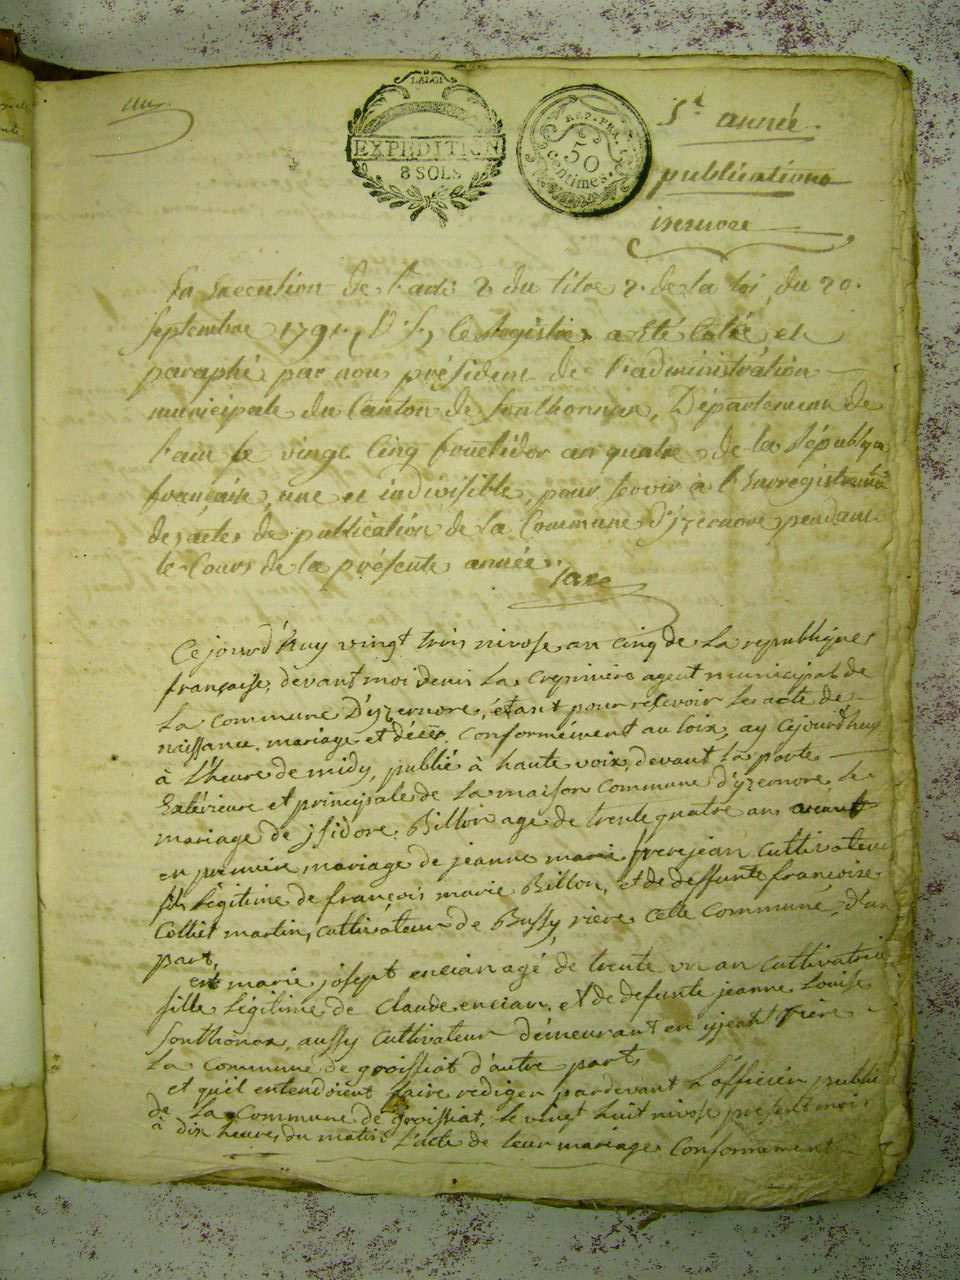 un.
LA LOI
EXPEDITION
8 SOLS
REP. FRA.
50
centimes.
5e année.
publications
izernore
En Execution de l'arte 2 du titre 2. de la loi du 20.
Septembre 1791, V. S., Ce Registre a Eté Cotée et
paraphé par nous président de l'administration
municipale du Canton de Sonthonnax, Département de
l'ain le vingt Cinq fructidor an quatre de la Républiq.
française, une et indivisible, pour servir à l'Enregistrement
des actes de publication de la Commune d'izernore pendant
le Cours de la présente année.
Ce jourd'huy vingt trois nivose an cinq de la republique
française, devant moi denis La crepiniere agent municipal de
La commune D'yzernore, étant pour recevoir les acte de
naissance, mariage et décès, conformément au loix, ay cejourd'huy
à l'heure de midy, publié à haute voix, devant la porte
Extérieure et principale de La maison Commune d'yzernore Le
mariage de jsidore Billon agé de trente quatre ans
en premiere mariage de jeanne marie frerejean cultivateur
fils Légitime de françois marie Billon, et de deffunte françoise
Collet martin, cultivateur de Bussy, riere cette commune, d'un
part,
et marie josept encian agé de trente un an cultivatrice
fille Légitime de Claude encian, et de defunte jeanne Louise
Sonthonax, aussy cultivateur demeurant en rière
La Commune de groissiat d'autre part
et qu'il entendoient faire rediger pardevant L'officier public
de La Commune de groissiat, le vingt huit nivose présent mois
à dix heures du matin L'acte de leur mariage Conformement